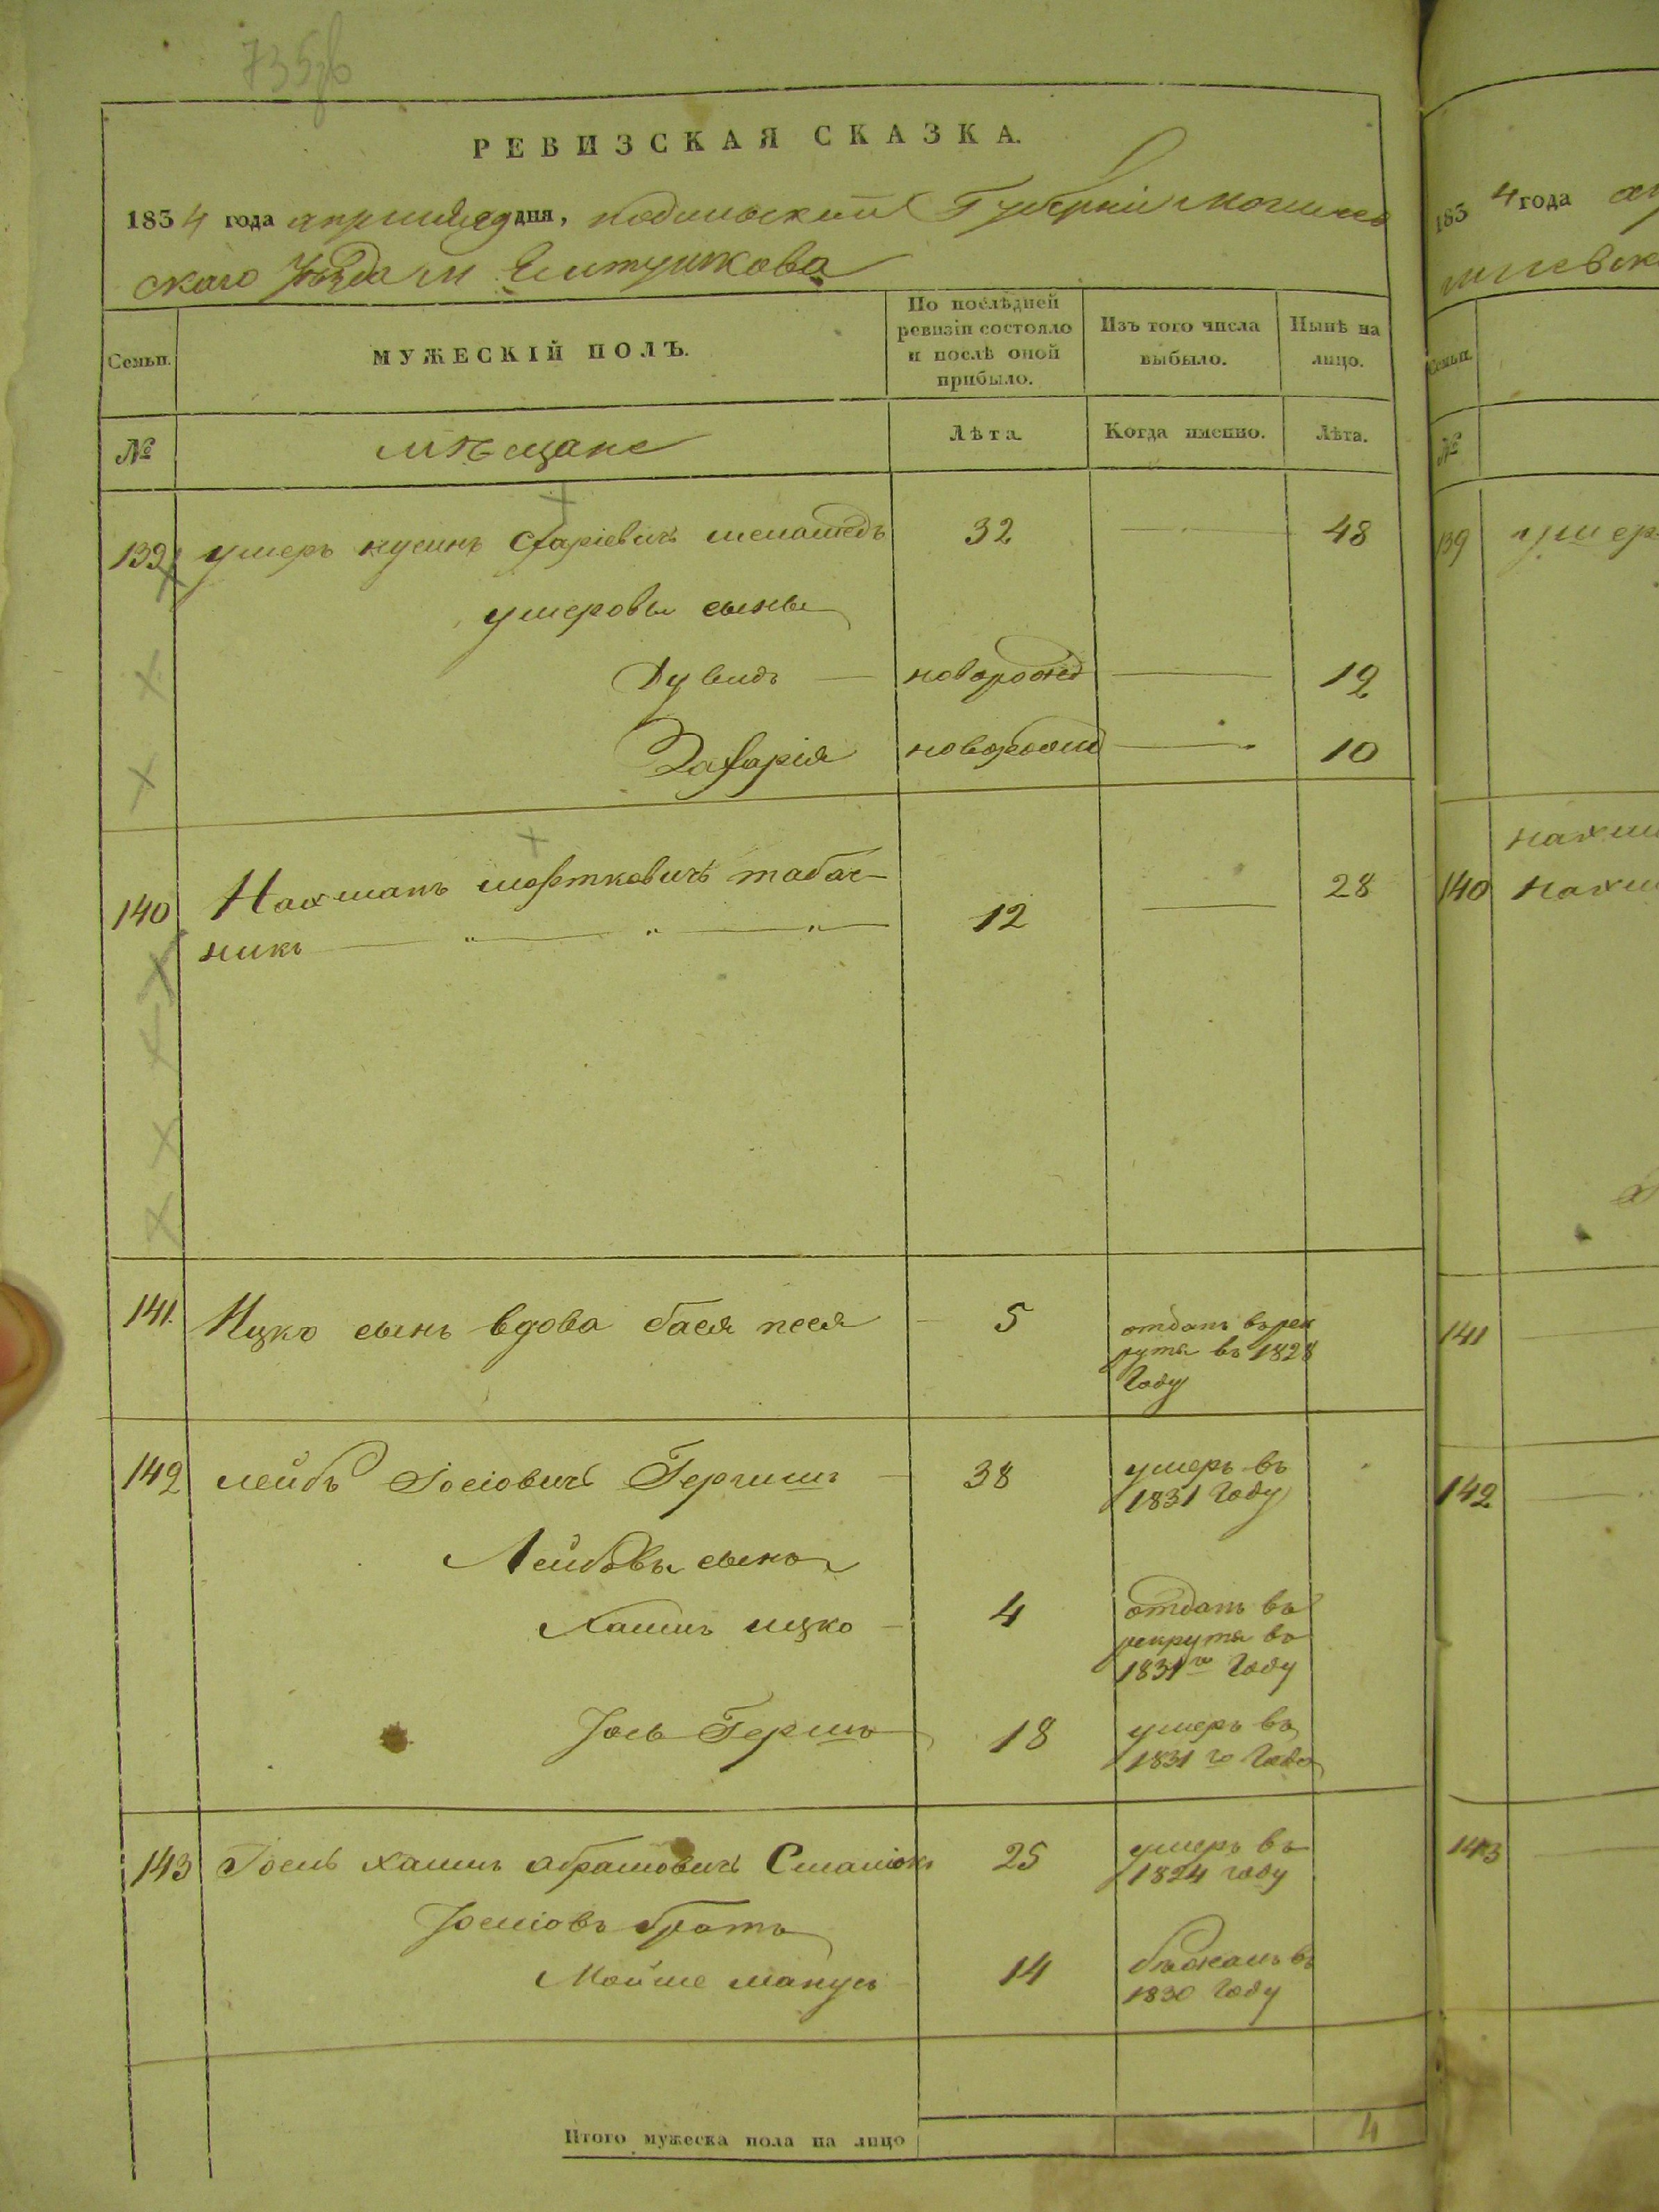 РЕВИЗСКАЯ СКАЗКА.
1834 года дня, подольской Губерніи могилев
скаго уѣзда м Елтушкова
Семьи.
МУЖЕСКІЙ ПОЛЪ.
По послѣдней ревизіи состояло и послѣ оной прибыло.
Изъ того числа выбыло.
Нынѣ на лицо.
№
мѣщане
Лѣта
Когда именно.
Лѣта.
139 ушеръ нусинъ 32 48
ушеровы сыны
Дувидъ новорожд 12
Захарія новорожд 10
140 Нахманъ мортковичъ табач- 28
никъ 12
141. Ицко сынъ вдова бася песя 5 отданъ въ рек
руты въ 1828
Году
142 лейбъ Іосіовичъ Гершинъ 38 умеръ въ
1831 Году
Лейбовы сыны
Хаимъ ицко 4 отданъ въ
рекруты въ
1831го Году
Іось Гершъ 18 умеръ въ
1831го Года
143 хаимъ абрамовичъ 25 умеръ въ
1824 году
братъ
Мойше манусъ 14 бѣжалъ въ
1830 Году
Итого мужеска пола на лицо 4
183 4 года
Семьи.
№
139 ушер
140
141
142
143